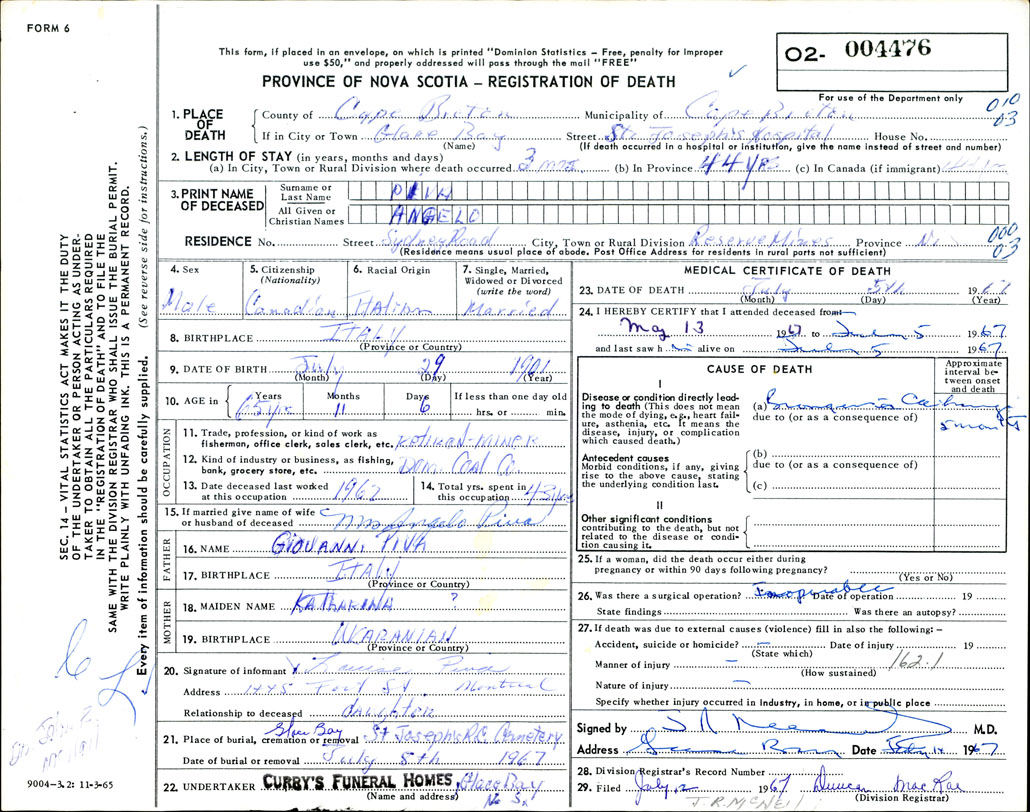 FORM 6
This form, if placed in an envelope, on which is printed "Dominion Statistics – Free, penalty for improper
use $50," and properly addressed will pass through the mail "FREE"
O2- 004476
For use of the Department only
PROVINCE OF NOVA SCOTIA – REGISTRATION OF DEATH
010
03
1. PLACE OF DEATH
County of Cape Breton Municipality of Cape Breton
If in City or Town Glace Bay Street St. Joseph's Hospital House No.
(Name) (If death occurred in a hospital or institution, give the name instead of street and number)
2. LENGTH OF STAY (in years, months and days)
(a) In City, Town or Rural Division where death occurred 3 mos (b) In Province 44 yrs (c) In Canada (if immigrant)
3. PRINT NAME OF DECEASED
Surname or Last Name PIVA
All Given or Christian Names ANGELO
000
03
RESIDENCE No. Street Sydney Road City, Town or Rural Division Reserve Mines Province
(Residence means usual place of abode. Post Office Address for residents in rural parts not sufficient)
4. Sex Male
5. Citizenship (Nationality) Canadian
6. Racial Origin ITALIAN
7. Single, Married, Widowed or Divorced (write the word) Married
8. BIRTHPLACE ITALY
(Province or Country)
9. DATE OF BIRTH July 29 1901
(Month) (Day) (Year)
10. AGE in Years 65 yrs Months 11 Days 6 If less than one day old hrs. or min.
OCCUPATION
11. Trade, profession, or kind of work as
fisherman, office clerk, sales clerk, etc. RETIRED-MINER
12. Kind of industry or business, as fishing,
bank, grocery store, etc. Dom. Coal Co.
13. Date deceased last worked
at this occupation 1962
14. Total yrs. spent in
this occupation 43 yrs
15. If married give name of wife
or husband of deceased Mrs Angelo Piva
FATHER
16. NAME GIOVANNI PIVA
17. BIRTHPLACE ITALY
(Province or Country)
MOTHER
18. MAIDEN NAME KATHARINA ?
19. BIRTHPLACE UKARANIAN
(Province or Country)
20. Signature of informant Louise Piva
Address 1445 Fort St. Montreal
Relationship to deceased daughter
21. Place of burial, cremation or removal Glace Bay St Joseph's R.C. Cemetery
Date of burial or removal July 8th 1967
22. UNDERTAKER CURRY'S FUNERAL HOMES Glace Bay
(Name and address)
MEDICAL CERTIFICATE OF DEATH
23. DATE OF DEATH July 5th 1967
(Month) (Day) (Year)
24. I HEREBY CERTIFY that I attended deceased from
May 13 1967 to July 5 1967
and last saw him alive on July 5 1967
CAUSE OF DEATH
Approximate interval between onset and death
I
Disease or condition directly leading to death (This does not mean the mode of dying, e.g., heart failure, asthenia, etc. It means the disease, injury, or complication which caused death.)
(a)
due to (or as a consequence of)
5 months
Antecedent causes
Morbid conditions, if any, giving rise to the above cause, stating the underlying condition last.
(b)
due to (or as a consequence of)
(c)
II
Other significant conditions
contributing to the death, but not related to the disease or condition causing it.
25. If a woman, did the death occur either during
pregnancy or within 90 days following pregnancy?
(Yes or No)
26. Was there a surgical operation? Inoperable Date of operation 19
State findings Was there an autopsy?
27. If death was due to external causes (violence) fill in also the following: –
Accident, suicide or homicide? – Date of injury 19
(State which)
Manner of injury – 162.1
(How sustained)
Nature of injury –
Specify whether injury occurred in industry, in home, or in public place
Signed by M.D.
Address Date 1967
28. Division Registrar's Record Number
29. Filed July 12 1967 Duncan MacRae
(Division Registrar)
J.R. McNeil
SEC. 14 – VITAL STATISTICS ACT MAKES IT THE DUTY
OF THE UNDERTAKER OR PERSON ACTING AS UNDER-
TAKER TO OBTAIN ALL THE PARTICULARS REQUIRED
IN THE "REGISTRATION OF DEATH" AND TO FILE THE
SAME WITH THE DIVISION REGISTRAR WHO SHALL ISSUE THE BURIAL PERMIT.
WRITE PLAINLY WITH UNFADING INK. THIS IS A PERMANENT RECORD.
Every item of information should be carefully supplied. (See reverse side for instructions.)
9004-3.2: 11-3-65